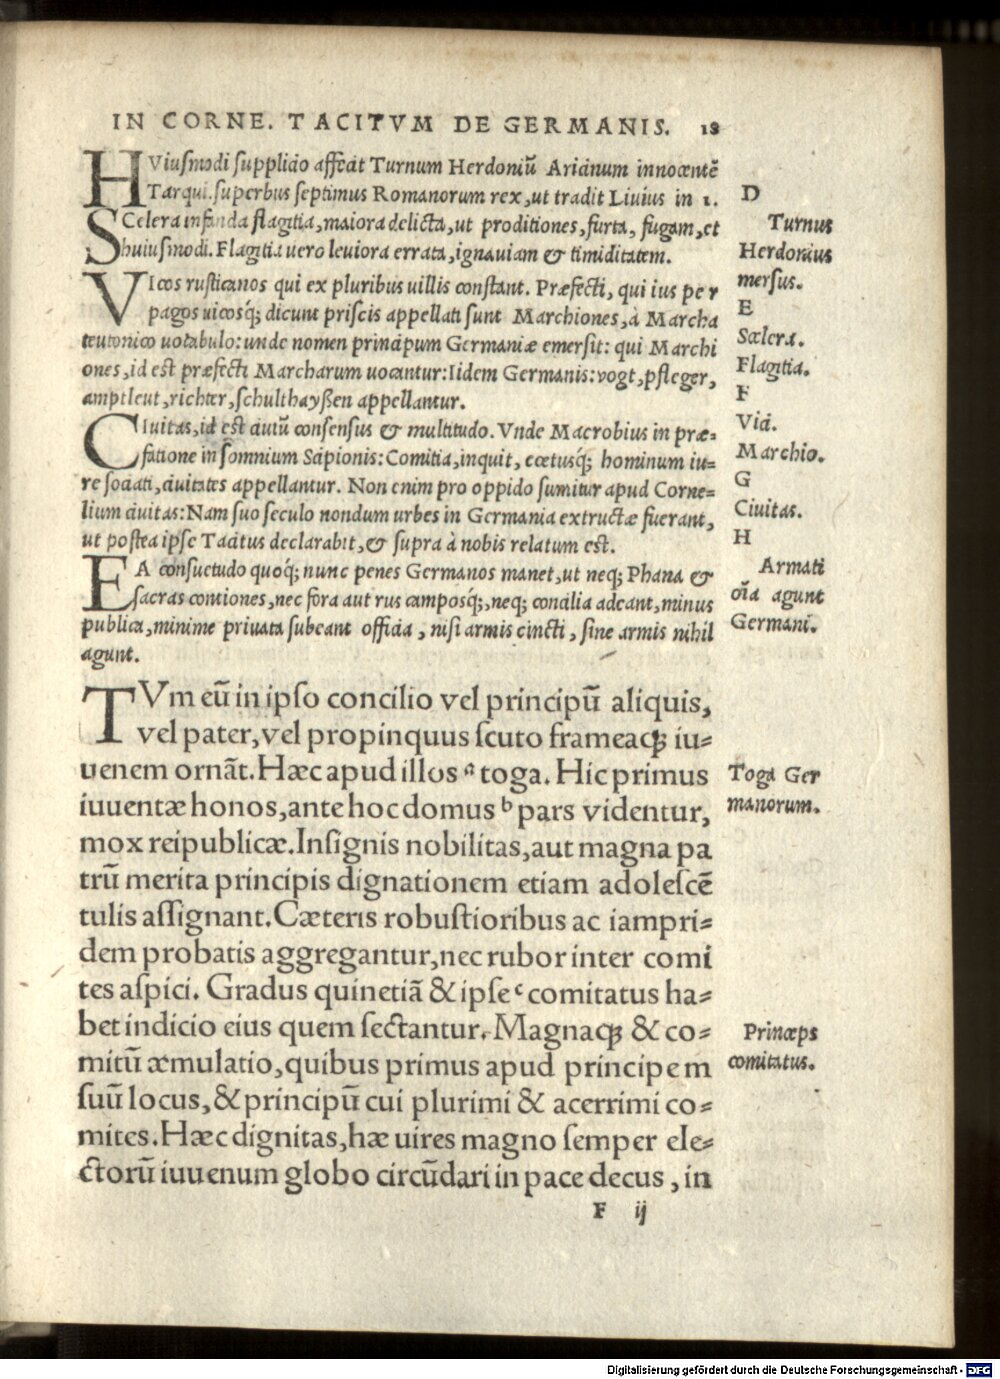 IN CORNE. TACITVM DE GERMANIS. 18
HViusmodi supplicio affecit Turnum Herdoniũ Aricinum innocentẽ
Tarqui. superbus septimus Romanorum rex, ut tradit Liuius in 1.
SCelera infanda flagitia, maiora delicta, ut proditiones, furta, fugam, et
huiusmodi. Flagitia uero leuiora errata, ignauiam & timiditatem.
VIcos rusticanos qui ex pluribus uillis constant. Præfecti, qui ius per
pagos uicosq; dicunt priscis appellati sunt Marchiones, à Marcha
teutonico uocabulo: unde nomen principum Germaniæ emersit: qui Marchi
ones, id est præfecti Marcharum uocantur: Iidem Germanis: vogt, pfleger,
amptleut, richter, schulthayßen appellantur.
CIuitas, id est ciuiũ consensus & multitudo. Vnde Macrobius in præ=
fatione in somnium Scipionis: Comitia, inquit, cœtusq; hominum iu=
re sociati, ciuitates appellantur. Non enim pro oppido sumitur apud Corne=
lium ciuitas: Nam suo seculo nondum urbes in Germania extructæ fuerant,
ut postea ipse Tacitus declarabit, & supra à nobis relatum est.
EA consuetudo quoq; nunc penes Germanos manet, ut neq; Phana &
sacras contiones, nec fora aut rus camposq;, neq; concilia adeant, minus
publica, minime priuata subeant officia, nisi armis cincti, sine armis nihil
agunt.
TVm eũ in ipso concilio vel principũ aliquis,
vel pater, vel propinquus scuto frameaq; iu=
uenem ornãt. Hæc apud illos ᵃ toga. Hic primus
iuuentæ honos, ante hoc domus ᵇ pars videntur,
mox reipublicæ. Insignis nobilitas, aut magna pa
trũ merita principis dignationem etiam adolescẽ
tulis assignant. Cæteris robustioribus ac iampri=
dem probatis aggregantur, nec rubor inter comi
tes aspici. Gradus quinetiã & ipse ᶜ comitatus ha=
bet indicio eius quem sectantur. Magnaq; & co=
mitũ æmulatio, quibus primus apud principem
suũ locus, & principũ cui plurimi & acerrimi co=
mites. Hæc dignitas, hæ uires magno semper ele=
ctorũ iuuenum globo circũdari in pace decus, in
F ij
D
Turnus
Herdonius
mersus.
E
Scelera.
Flagitia.
F
Vici.
Marchio.
G
Ciuitas.
H
Armati
oĩa agunt
Germani.
Toga Ger
manorum.
Princeps
comitatus.
Digitalisierung gefördert durch die Deutsche Forschungsgemeinschaft - DFG